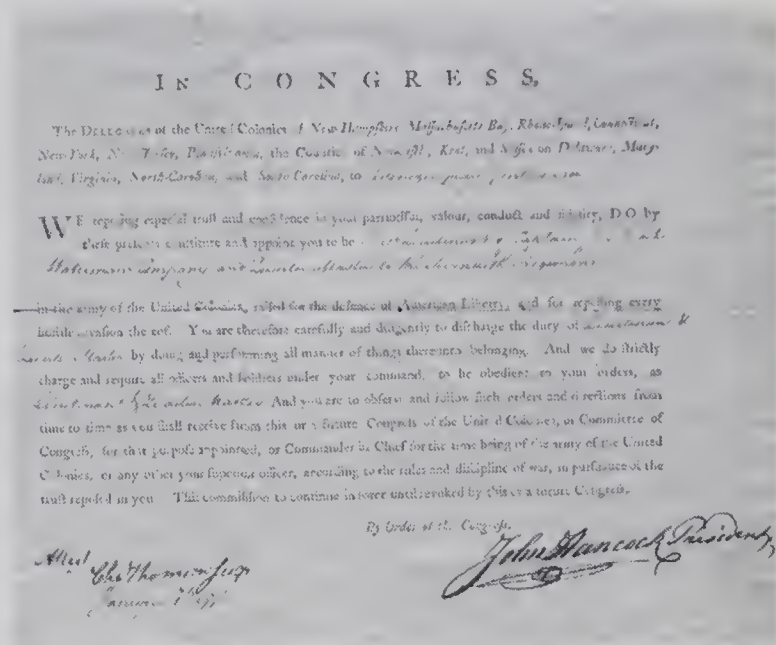 IN CONGRESS,
The DELEGATES of the United Colonies of New-Hampshire, Massachusetts Bay, Rhode-Island, Connecticut,
New-York, New-Jersey, Pennsylvania, the Counties of Newcastle, Kent, and Sussex on Delaware, Mary-
land, Virginia, North-Carolina, and South-Carolina, to
WE reposing especial trust and confidence in your patriotism, valour, conduct and fidelity, DO by
these presents constitute and appoint you to be
Company and
in the army of the United Colonies, raised for the defence of American Liberty, and for repelling every
hostile invasion thereof. You are therefore carefully and diligently to discharge the duty of Lieutenant &
Quarter Master by doing and performing all manner of things thereunto belonging. And we do strictly
charge and require all officers and soldiers under your command, to be obedient to your orders, as
Lieutenant & Quarter Master And you are to observe and follow such orders and directions from
time to time as you shall receive from this or a future Congress of the United Colonies, or Committee of
Congress, for that purpose appointed, or Commander in Chief for the time being of the army of the United
Colonies, or any other your superior officer, according to the rules and discipline of war, in pursuance of the
trust reposed in you. This commission to continue in force until revoked by this or a future Congress.
By Order of the Congress,
John Hancock President
Attest Cha Thomson Secy